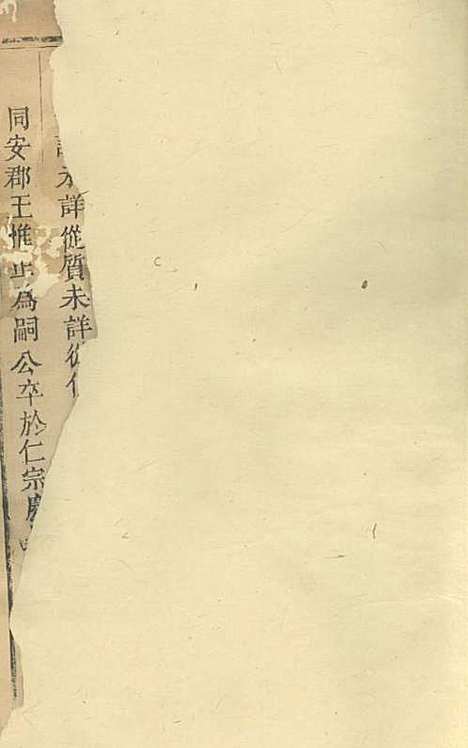 詳從質未詳從
同安郡王惟正為嗣公卒於仁宗